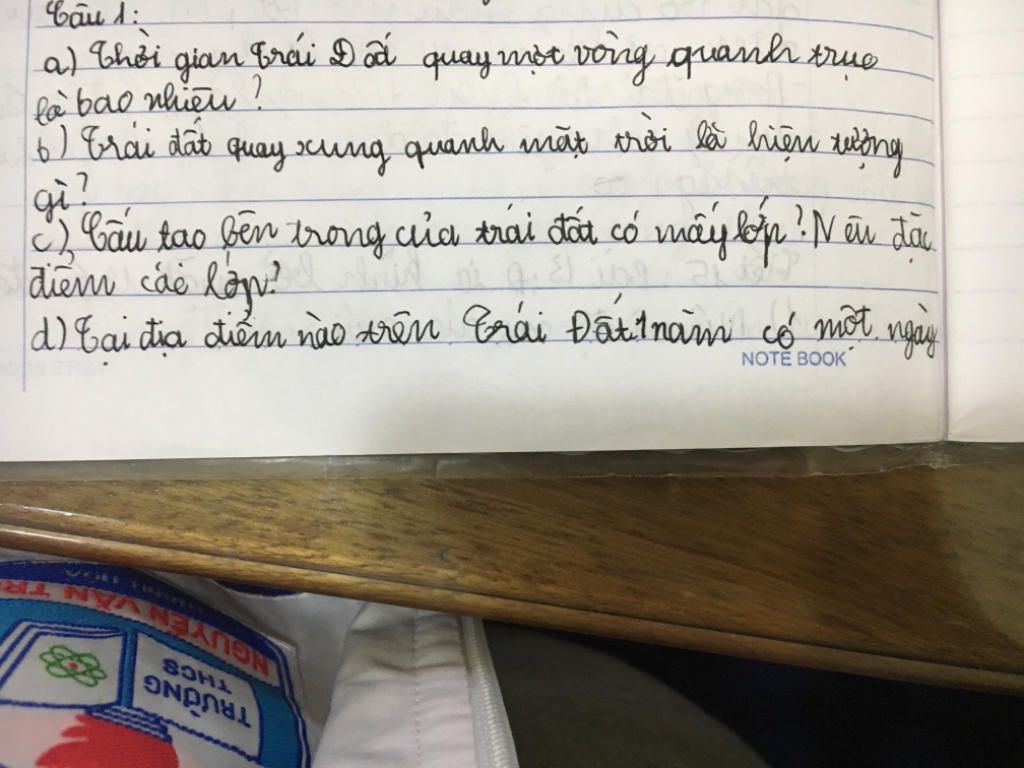 Câu 1:
a) Thời gian Trái Đất quay một vòng quanh trục
là bao nhiêu?
b) Trái đất quay xung quanh mặt trời là hiện tượng
gì?
c) Cấu tạo bên trong của trái đất có mấy lớp? Nêu đặc
điểm các lớp?
d) Tại địa điểm nào trên Trái Đất 1 năm có một ngày
NOTE BOOK
NGUYỄN VĂN TR
TRƯỜNG
THCS